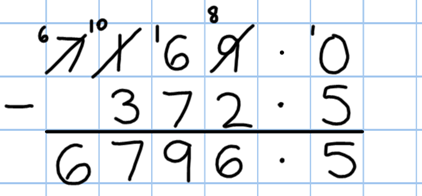 6 10 8
7 1 16 9 . 10
- 372.5
6796.5